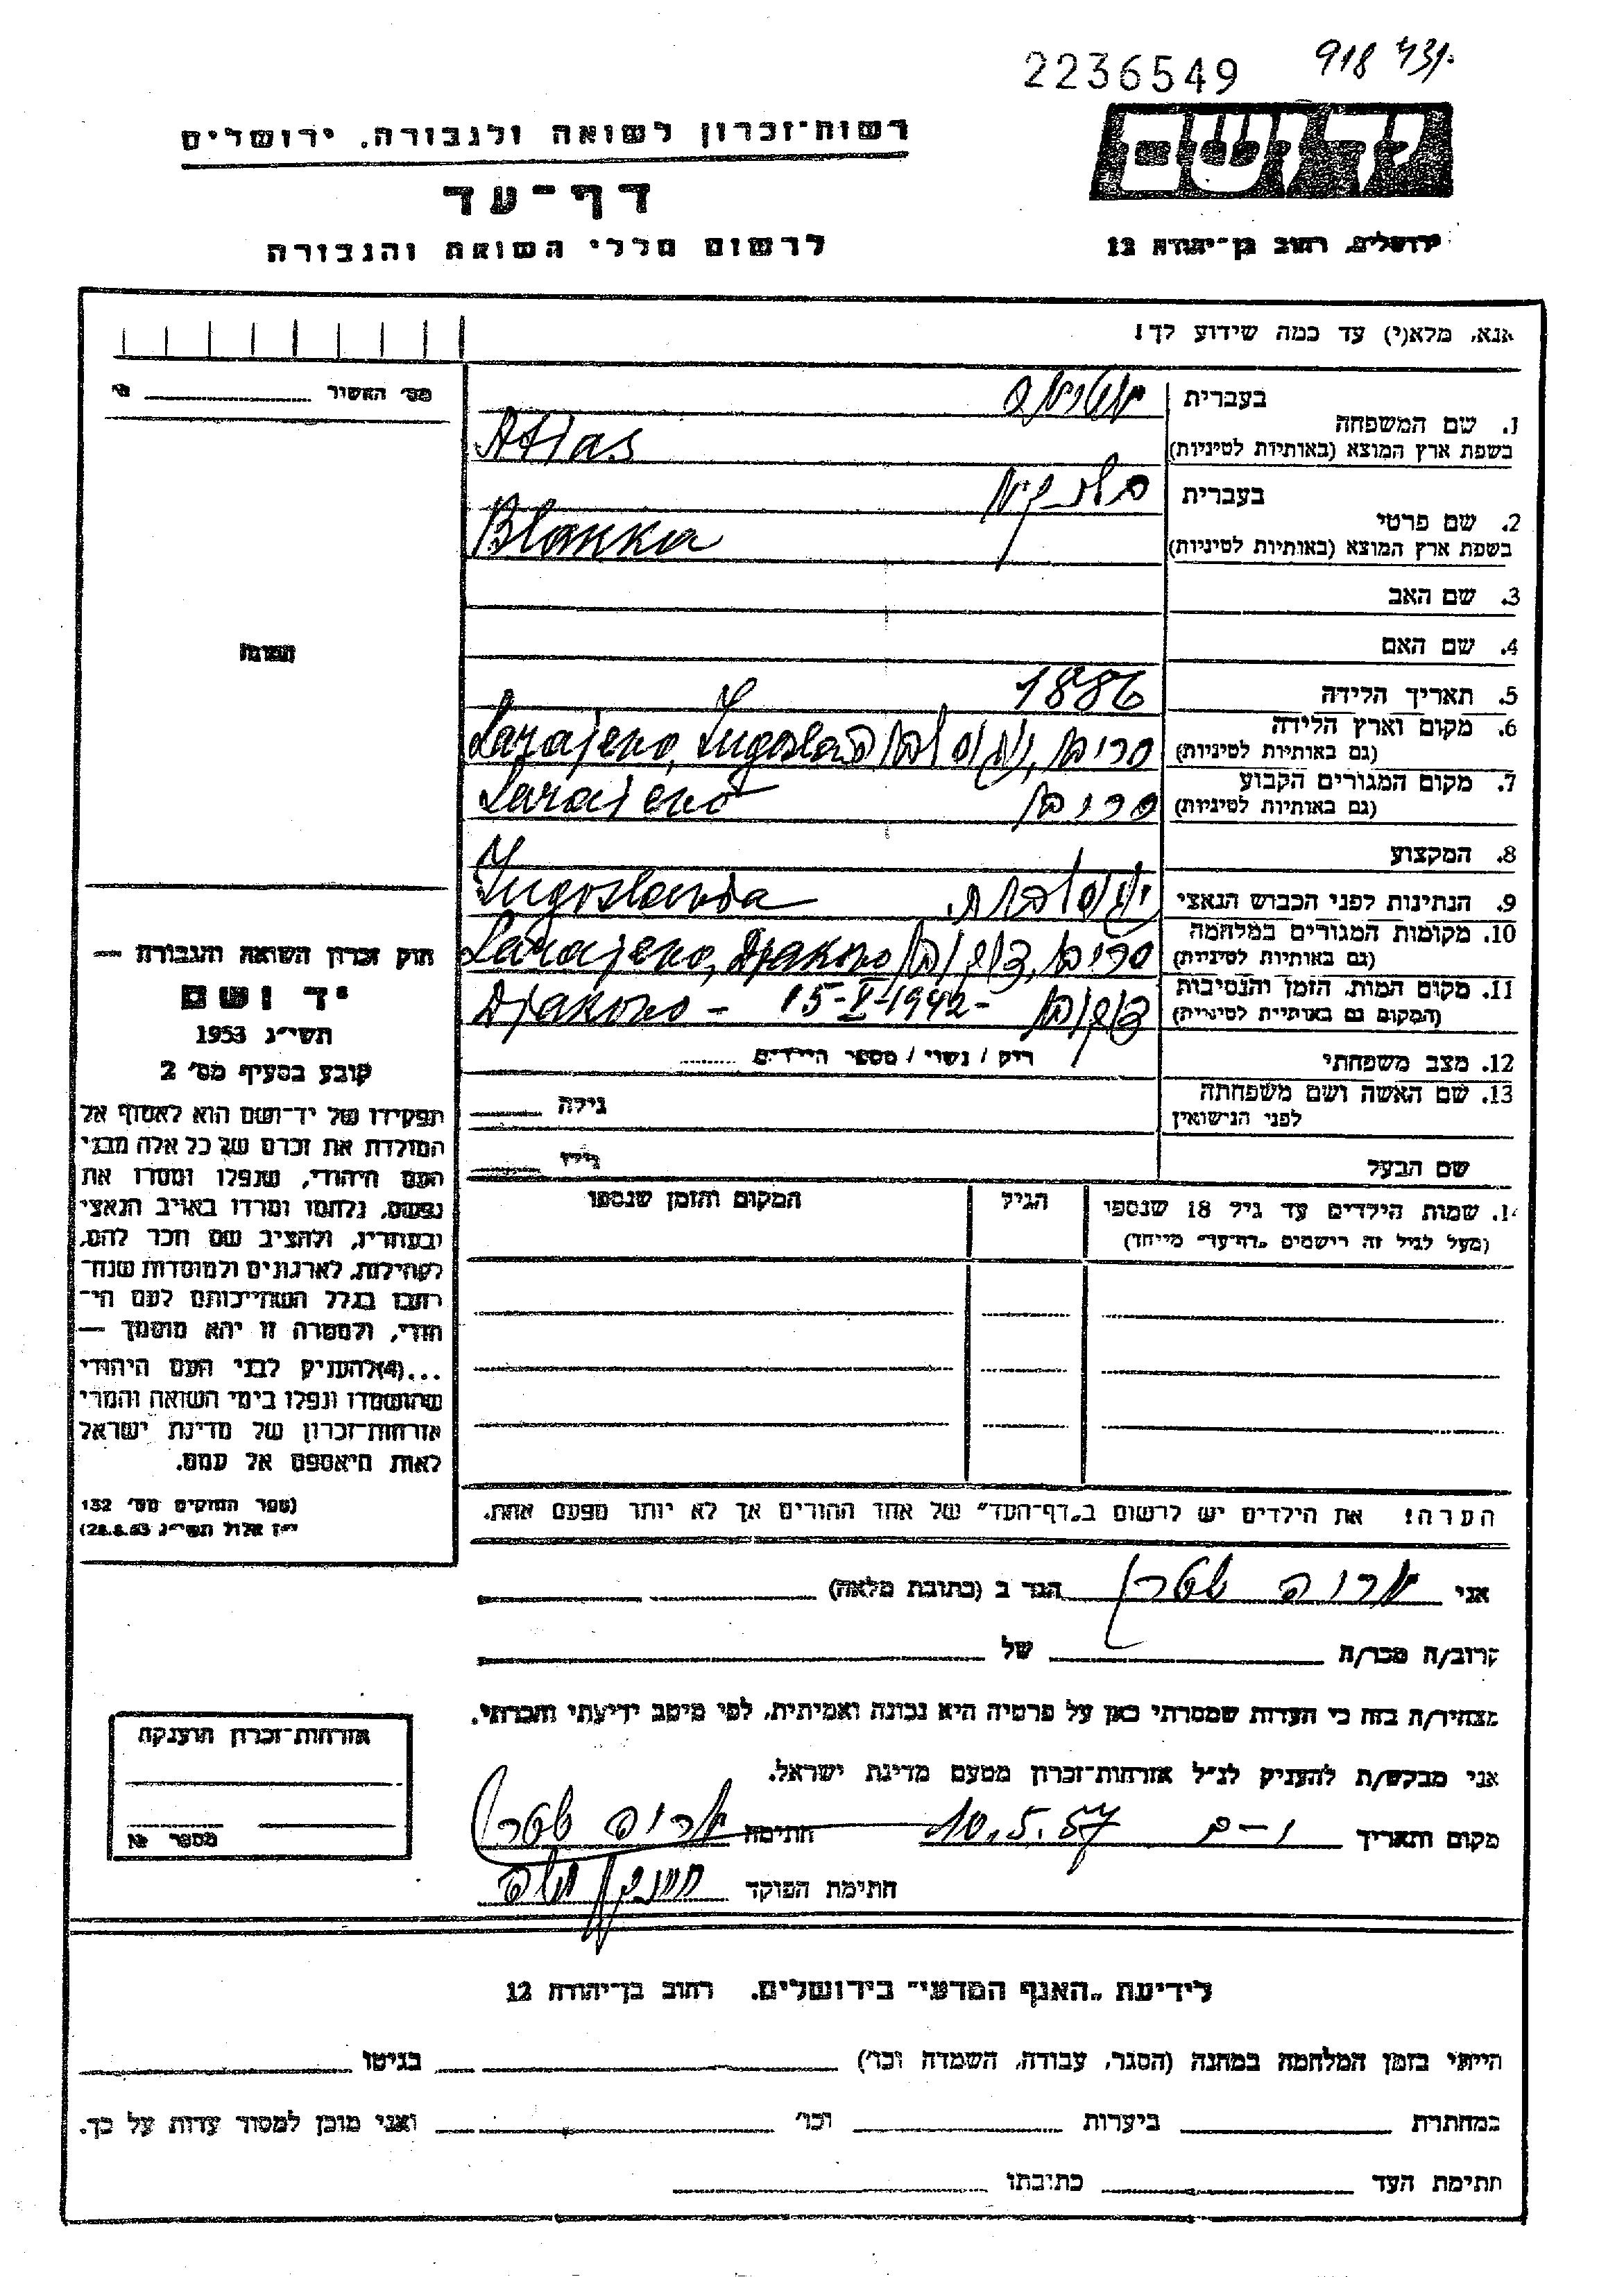 2236549 918
רשות־זכרון לשואה ולגבורה, ירושלים
יד ושם
דף־עד
ירושלים, רחוב בן־יהודה 12
לרשום חללי השואה והגבורה
אנא, מלא(י) עד כמה שידוע לך!
מס' האשור
1. שם המשפחה
בעברית
בשפת ארץ המוצא (באותיות לטיניות) Atias
2. שם פרטי
בעברית בלנקה
בשפת ארץ המוצא (באותיות לטיניות) Blanka
3. שם האב
4. שם האם
תמונה
5. תאריך הלידה 1886
6. מקום וארץ הלידה
(גם באותיות לטיניות) Sarajevo, Jugoslavia
7. מקום המגורים הקבוע
(גם באותיות לטיניות) Sarajevo
8. המקצוע
9. הנתינות לפני הכבוש הנאצי יוגוסלבית. Jugoslavia
10. מקומות המגורים במלחמה
(גם באותיות לטיניות) Sarajevo, Djakovo
11. מקום המות, הזמן והנסיבות
(המקום גם באותיות לטיניות) Djakovo - 15-V-1942-
12. מצב משפחתי רווק / נשוי / מספר הילדים
13. שם האשה ושם משפחתה גילה
לפני הנישואין
שם הבעל גילו
14. שמות הילדים עד גיל 18 שנספו הגיל המקום והזמן שנספו
(מעל לגיל זה רישמים „דף־עד" מייוחד)
הערה! את הילדים יש לרשום ב„דף־העד" של אחד ההורים אך לא יותר מפעם אחת.
חוק זכרון השואה והגבורה —
יד ושם
תשי"ג 1953
קובע בסעיף מס' 2
תפקידו של יד־ושם הוא לאסוף אל
המולדת את זכרם של כל אלה מבני
העם היהודי, שנפלו ומסרו את
נפשם, נלחמו ומרדו באויב הנאצי
ובעוזריו, ולהציב שם וזכר להם,
לקהילות, לארגונים ולמוסדות שנח־
רבו בגלל השתייכותם לעם הי־
הודי, ולמטרה זו יהא מוסמך —
...(4)להעניק לבני העם היהודי
שהושמדו ונפלו בימי השואה והמרי
אזרחות־זכרון של מדינת ישראל
לאות היאספם אל עמם.
(ספר החוקים מס' 132
י"ז אלול תשי"ג 28.8.53)
אני אריה שטרן הגר ב (כתובת מלאה)
קרוב/ה מכר/ה של
מצהיר/ה בזה כי העדות שמסרתי כאן על פרטיה היא נכונה ואמיתית, לפי מיטב ידיעתי והכרתי.
אני מבקש/ת להעניק לנ"ל אזרחות־זכרון מטעם מדינת ישראל.
מקום ותאריך י-ם 10.5.57 חתימה אריה שטרן
חתימת הפוקד
אזרחות־זכרון הוענקה
מספר №
לידיעת „האגף המדעי" בירושלים, רחוב בן־יהודה 12
הייתי בזמן המלחמה במחנה (הסגר, עבודה, השמדה וכו') בגיטו
במחתרת ביערות וכו' ואני מוכן למסור עדות על כך.
חתימת העד כתובתו